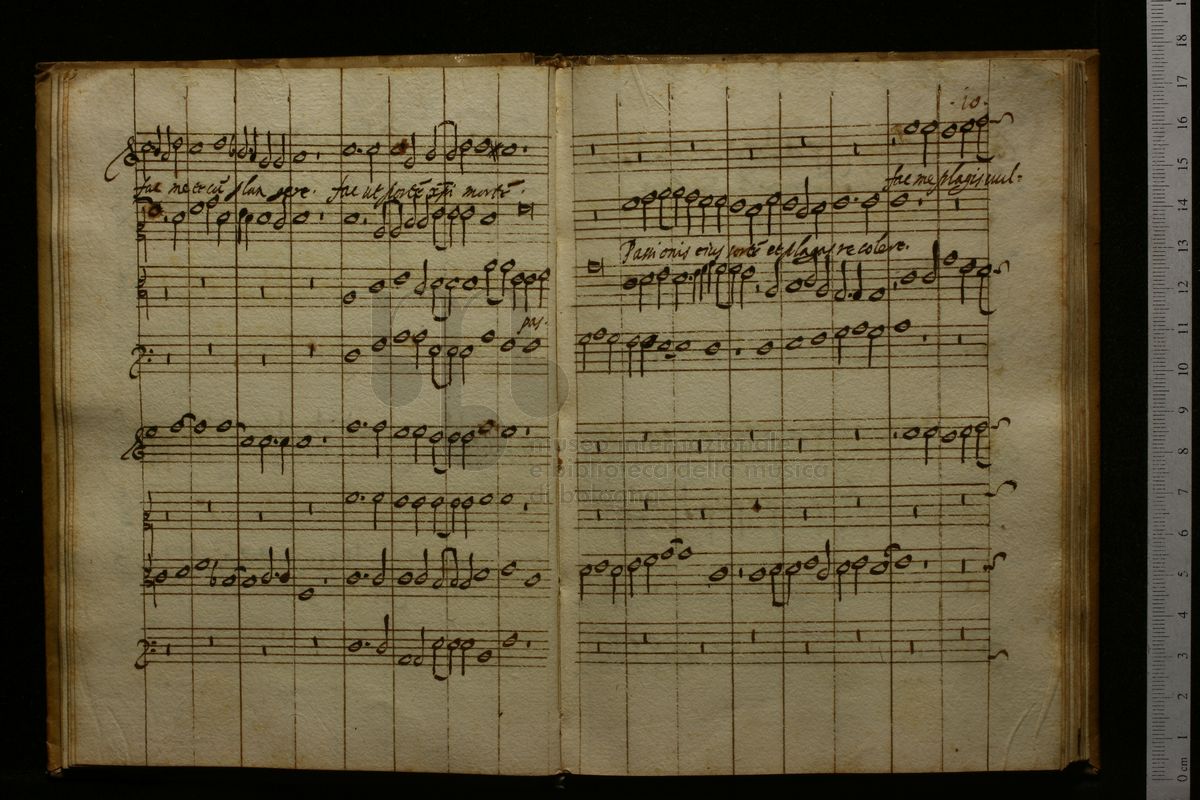 fac me tecū plan gere. fac ut portē xp̄i mortē.
pas.
10.
fac me plagis vul=
Passionis eius sortē et plagas recolere.
museo internazionale
e biblioteca della musica
di bologna
0 cm 1 2 3 4 5 6 7 8 9 10 11 12 13 14 15 16 17 18